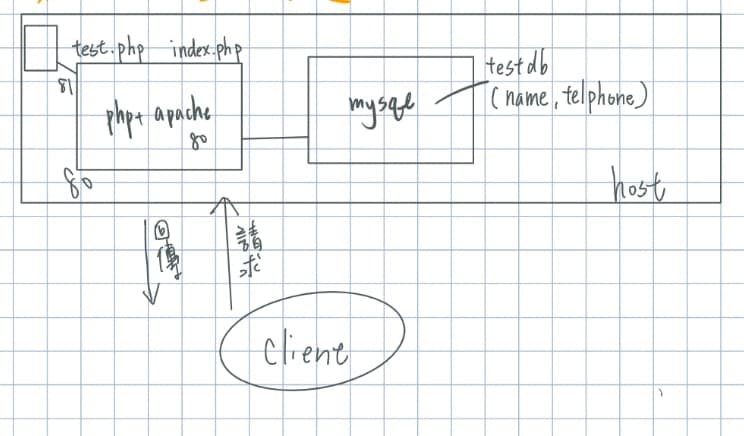 test.php index.php
81
php+ apache
80
80
mysql
testdb
(name, telphone)
host
回傳
請求
client